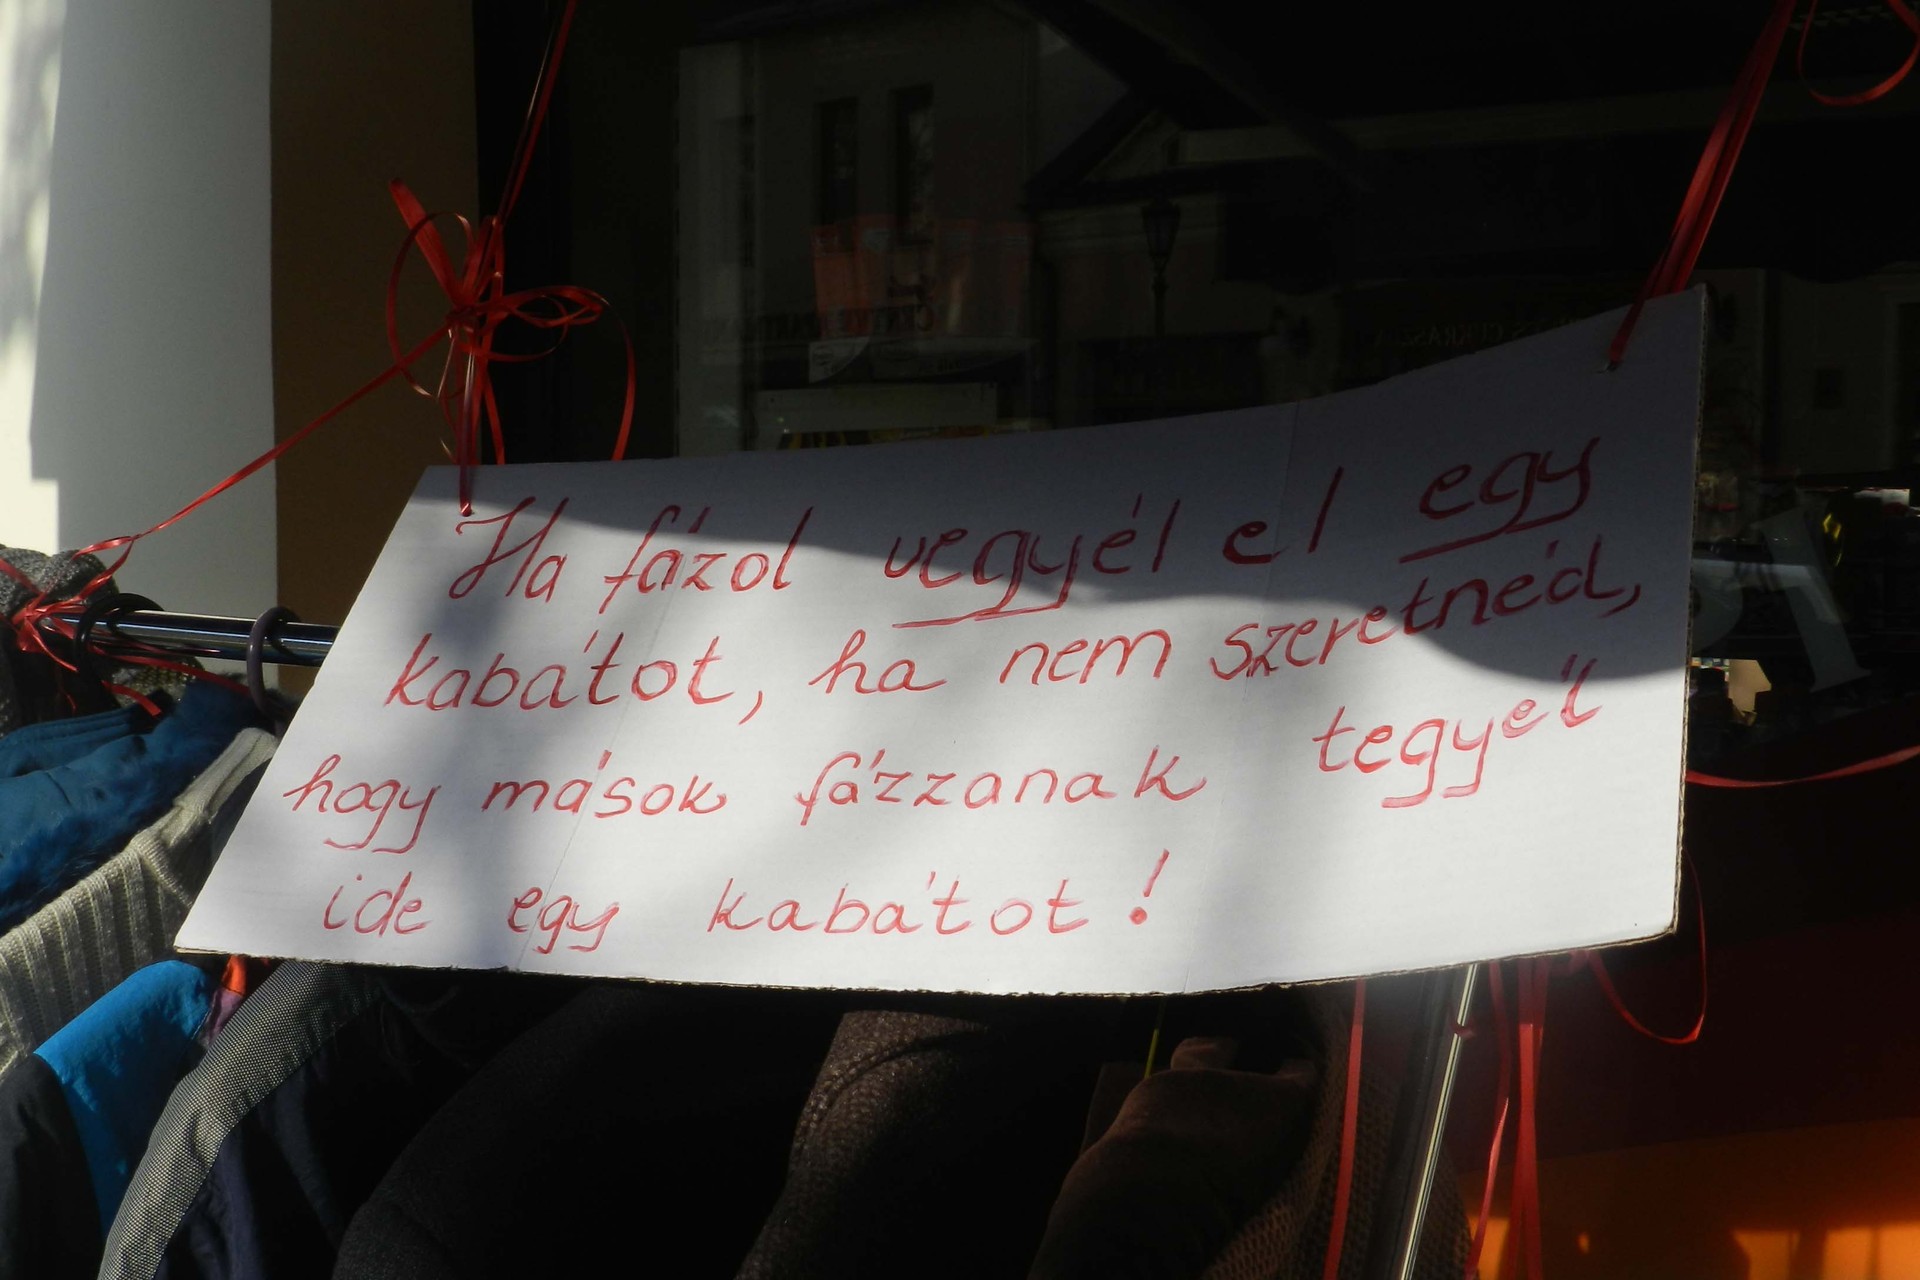 Ha fázol vegyél el egy
kabátot, ha nem szeretnéd,
hogy mások fázzanak tegyél
ide egy kabátot!